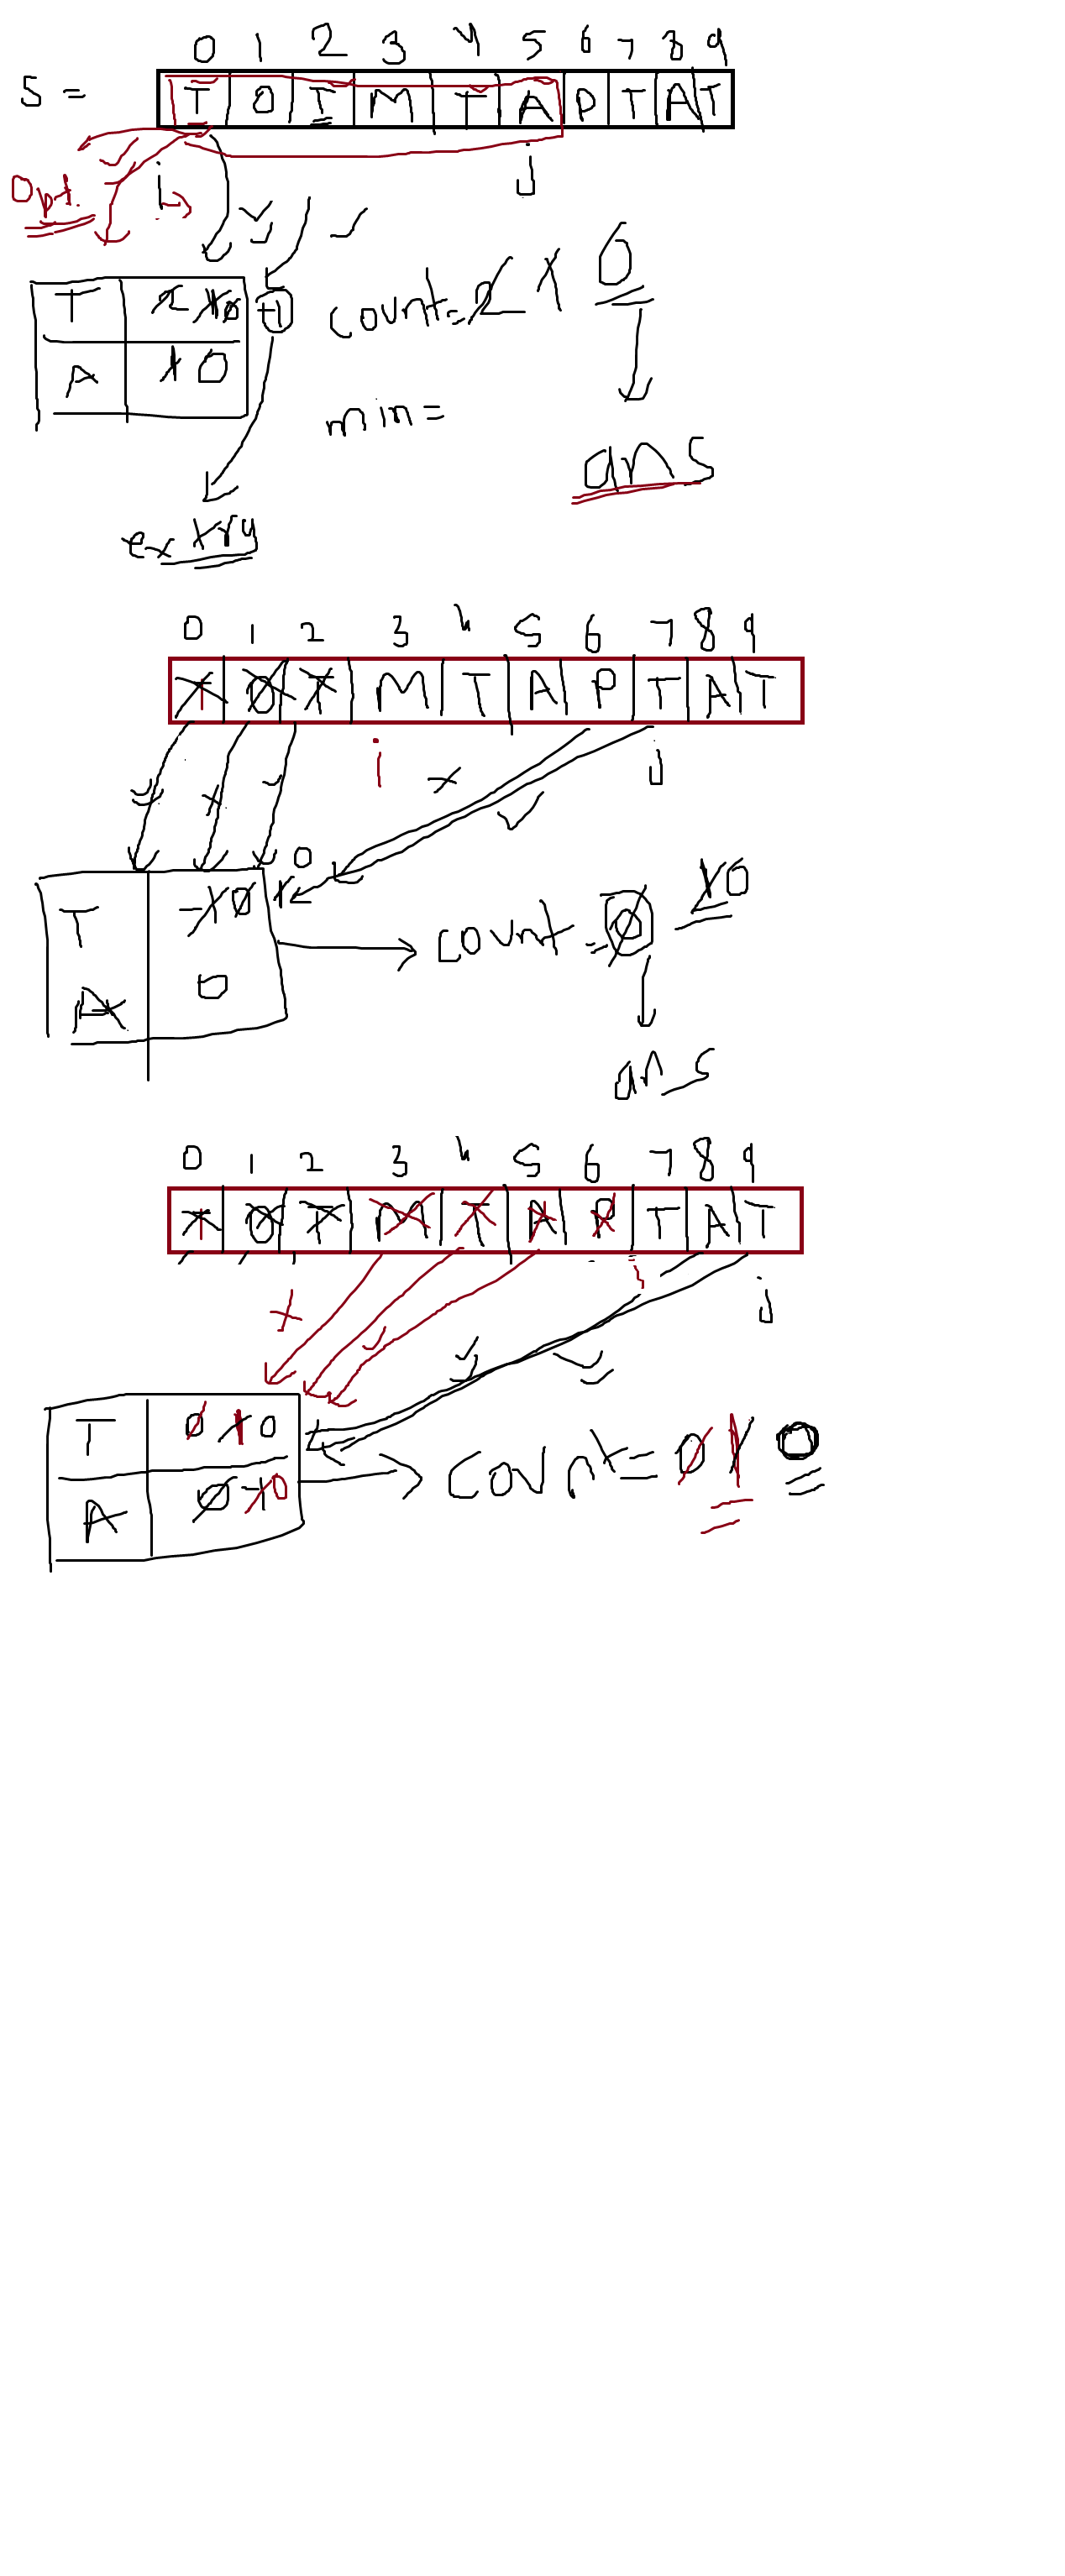 0 1 2 3 4 5 6 7 8 9
S = T O T M T A P T A T
Opt. i j
T 2 1 0 -1 count = 2 1 0
A 1 0
min =
ans
extra
0 1 2 3 4 5 6 7 8 9
T O T M T A P T A T
i j
0
T -1 0 1 count = 0 1 0
A 0
ans
0 1 2 3 4 5 6 7 8 9
T O T M T A P T A T
i j
T 0 1 0 count = 0 1 0
A 0 -1 0